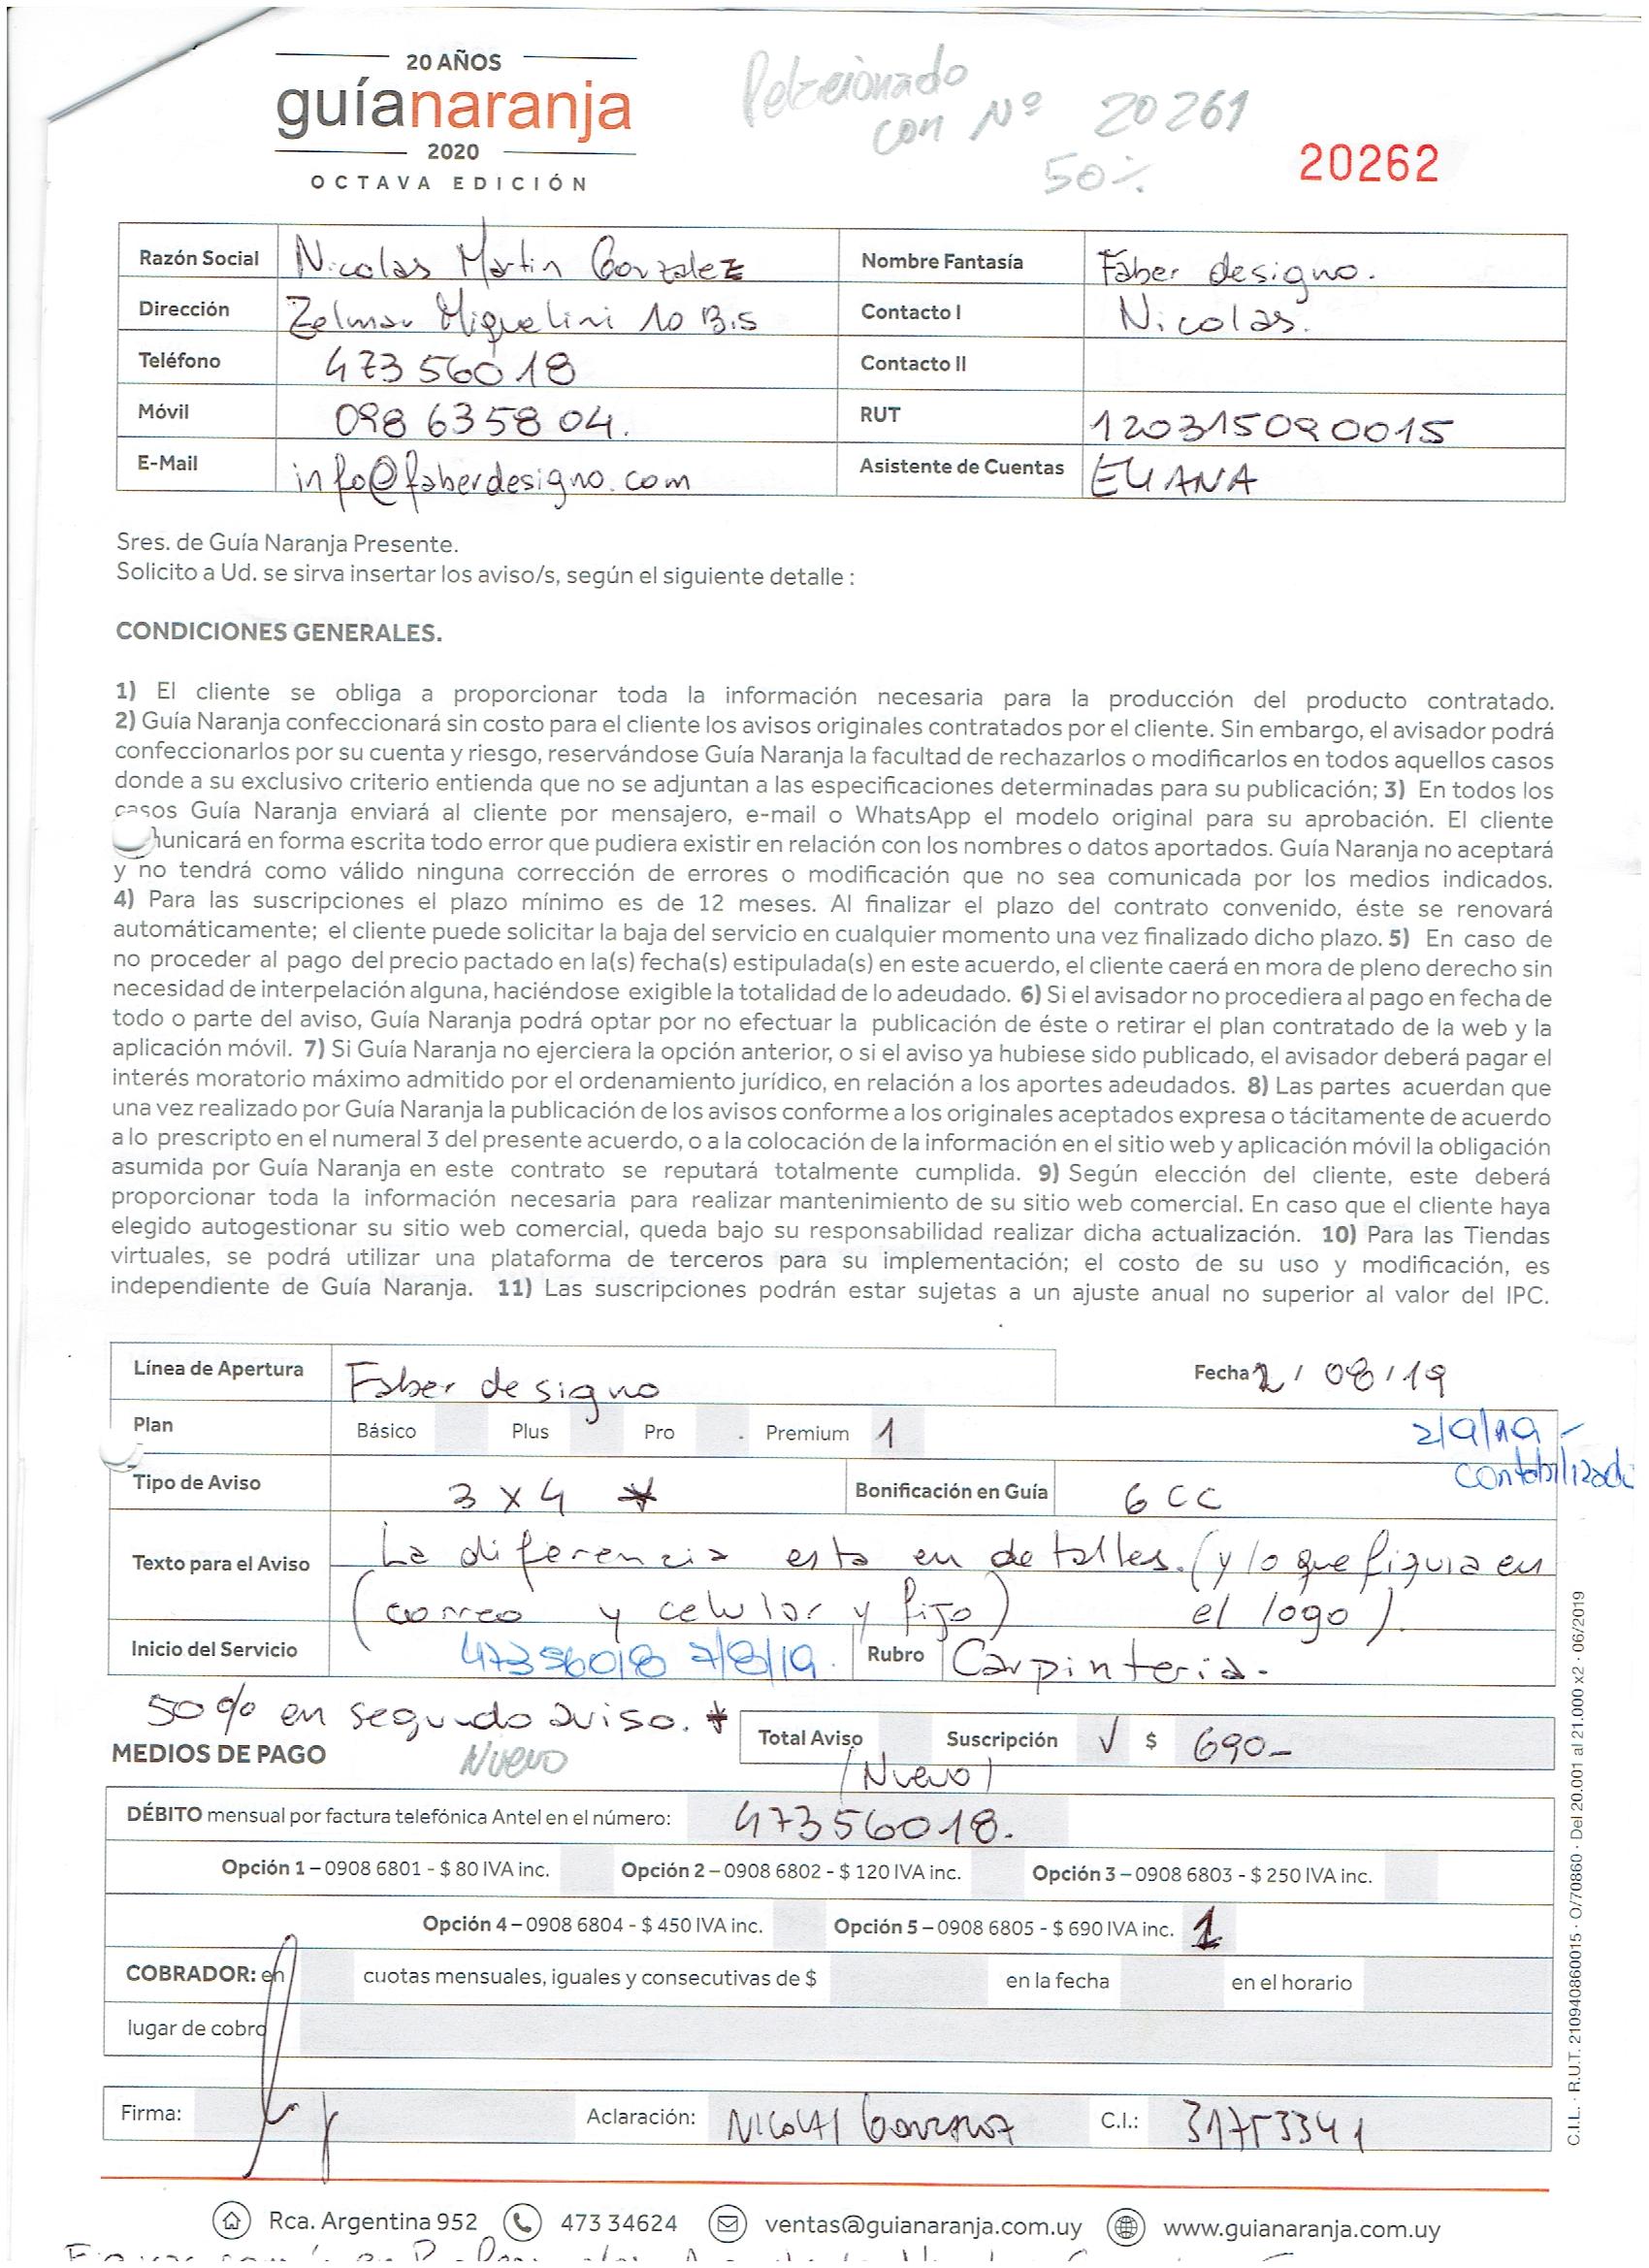 20 AÑOS
guíanaranja
2020
OCTAVA EDICIÓN
Relacionado
con Nº 20261
50%
20262
Razón Social Nicolas Martin Gonzalez Nombre Fantasía Faber designo.
Dirección Zelmar Miquelini 10 Bis Contacto I Nicolas.
Teléfono 473 56018 Contacto II
Móvil 098 635804. RUT 120315090015
E-Mail info@faberdesigno.com Asistente de Cuentas ELIANA
Sres. de Guía Naranja Presente.
Solicito a Ud. se sirva insertar los aviso/s, según el siguiente detalle :
CONDICIONES GENERALES.
1) El cliente se obliga a proporcionar toda la información necesaria para la producción del producto contratado.
2) Guía Naranja confeccionará sin costo para el cliente los avisos originales contratados por el cliente. Sin embargo, el avisador podrá
confeccionarlos por su cuenta y riesgo, reservándose Guía Naranja la facultad de rechazarlos o modificarlos en todos aquellos casos
donde a su exclusivo criterio entienda que no se adjuntan a las especificaciones determinadas para su publicación; 3) En todos los
casos Guía Naranja enviará al cliente por mensajero, e-mail o WhatsApp el modelo original para su aprobación. El cliente
municará en forma escrita todo error que pudiera existir en relación con los nombres o datos aportados. Guía Naranja no aceptará
y no tendrá como válido ninguna corrección de errores o modificación que no sea comunicada por los medios indicados.
4) Para las suscripciones el plazo mínimo es de 12 meses. Al finalizar el plazo del contrato convenido, éste se renovará
automáticamente; el cliente puede solicitar la baja del servicio en cualquier momento una vez finalizado dicho plazo. 5) En caso de
no proceder al pago del precio pactado en la(s) fecha(s) estipulada(s) en este acuerdo, el cliente caerá en mora de pleno derecho sin
necesidad de interpelación alguna, haciéndose exigible la totalidad de lo adeudado. 6) Si el avisador no procediera al pago en fecha de
todo o parte del aviso, Guía Naranja podrá optar por no efectuar la publicación de éste o retirar el plan contratado de la web y la
aplicación móvil. 7) Si Guía Naranja no ejerciera la opción anterior, o si el aviso ya hubiese sido publicado, el avisador deberá pagar el
interés moratorio máximo admitido por el ordenamiento jurídico, en relación a los aportes adeudados. 8) Las partes acuerdan que
una vez realizado por Guía Naranja la publicación de los avisos conforme a los originales aceptados expresa o tácitamente de acuerdo
a lo prescripto en el numeral 3 del presente acuerdo, o a la colocación de la información en el sitio web y aplicación móvil la obligación
asumida por Guía Naranja en este contrato se reputará totalmente cumplida. 9) Según elección del cliente, este deberá
proporcionar toda la información necesaria para realizar mantenimiento de su sitio web comercial. En caso que el cliente haya
elegido autogestionar su sitio web comercial, queda bajo su responsabilidad realizar dicha actualización. 10) Para las Tiendas
virtuales, se podrá utilizar una plataforma de terceros para su implementación; el costo de su uso y modificación, es
independiente de Guía Naranja. 11) Las suscripciones podrán estar sujetas a un ajuste anual no superior al valor del IPC.
Línea de Apertura Faber designo Fecha / 08 / 19
Plan Básico Plus Pro Premium 1
2/9/19 -
contabilizado
Tipo de Aviso 3 x 4 * Bonificación en Guía 6 CC
Texto para el Aviso La diferencia esta en detalles. (y lo que figura en
(correo y celular y fijo) el logo).
Inicio del Servicio 47356018 7/8/19. Rubro Carpinteria.
50% en segundo aviso. *
Total Aviso Suscripción √ $ 690-
MEDIOS DE PAGO Nuevo
(Nuevo)
DÉBITO mensual por factura telefónica Antel en el número: 47356018.
Opción 1 – 0908 6801 - $ 80 IVA inc. Opción 2 – 0908 6802 - $ 120 IVA inc. Opción 3 – 0908 6803 - $ 250 IVA inc.
Opción 4 – 0908 6804 - $ 450 IVA inc. Opción 5 – 0908 6805 - $ 690 IVA inc. 1
COBRADOR: en cuotas mensuales, iguales y consecutivas de $ en la fecha en el horario
lugar de cobro
Firma: Aclaración: NICOLAS GONZALEZ C.I.: 31753341
Rca. Argentina 952 473 34624 ventas@guianaranja.com.uy www.guianaranja.com.uy
C.I.L. · R.U.T. 210940860015 · O/70860 · Del 20.001 al 21.000 x2 · 06/2019